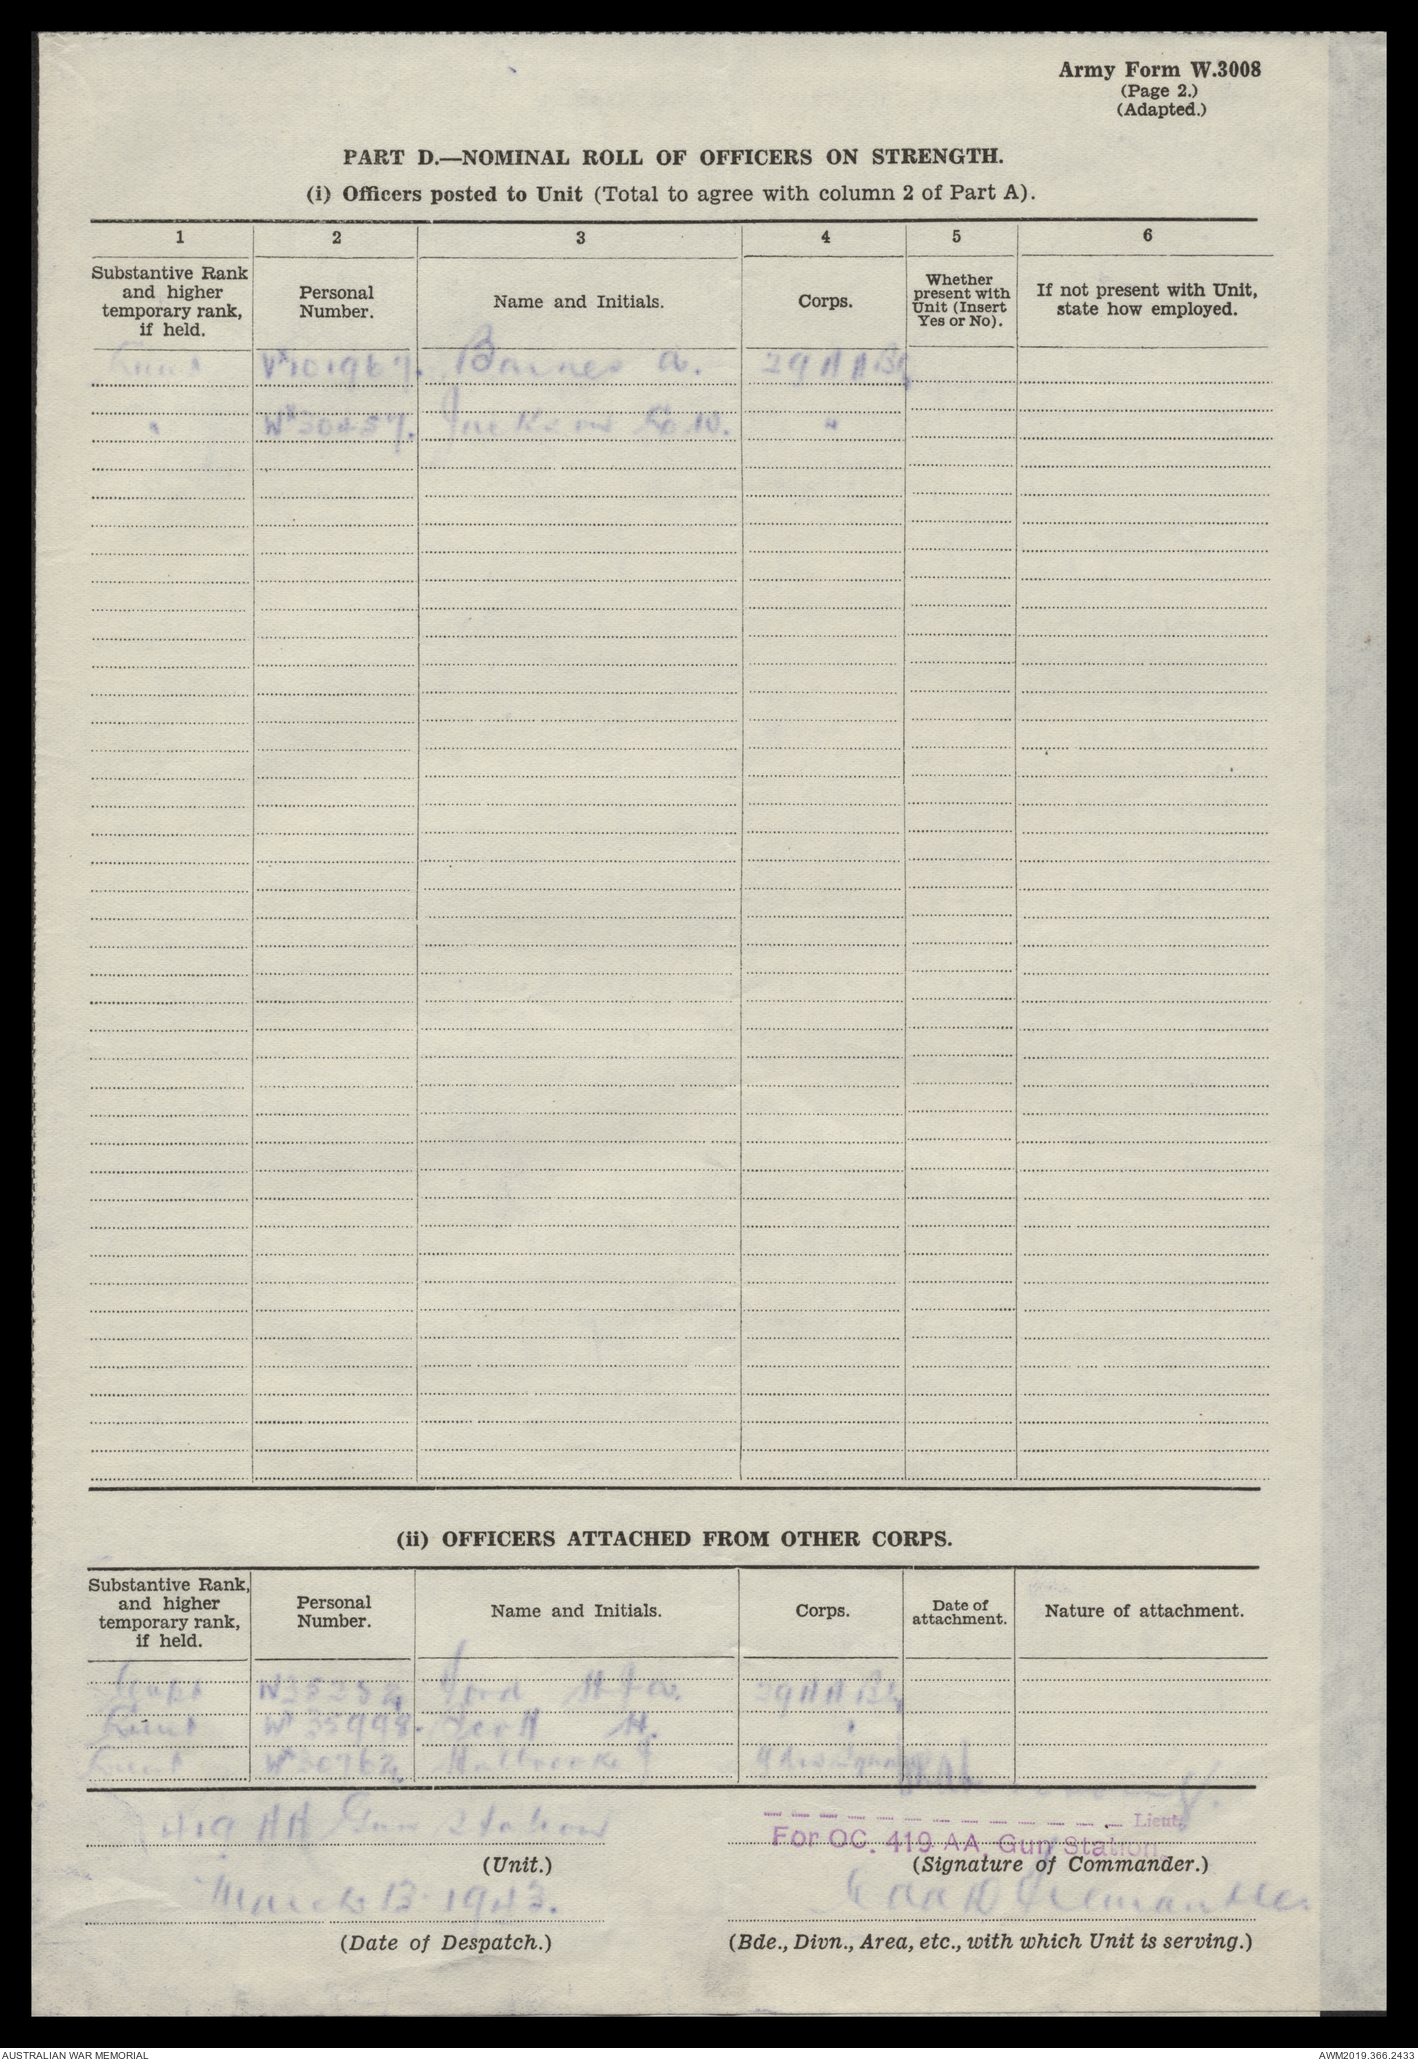 Army Form W.3008
(Page 2.)
(Adapted.)
PART D.—NOMINAL ROLL OF OFFICERS ON STRENGTH.
(i) Officers posted to Unit (Total to agree with column 2 of Part A).
1 2 3 4 5 6
Substantive Rank and higher temporary rank, if held.
Personal Number.
Name and Initials.
Corps.
Whether present with Unit (Insert Yes or No).
If not present with Unit, state how employed.
Lieut VX101967. Barnes A. 29 AA Bty
" WX30457. Jackson "
(ii) OFFICERS ATTACHED FROM OTHER CORPS.
Substantive Rank, and higher temporary rank, if held.
Personal Number.
Name and Initials.
Corps.
Date of attachment.
Nature of attachment.
Ford 29 AA Bty
Lieut Scott H. "
Lieut Holbrook
419 AA Gun Station
Lieut.
For OC. 419 AA. Gun Station.
(Unit.)
(Signature of Commander.)
March 13 1943.
Fremantle.
(Date of Despatch.)
(Bde., Divn., Area, etc., with which Unit is serving.)
AUSTRALIAN WAR MEMORIAL
AWM2019.366.2433